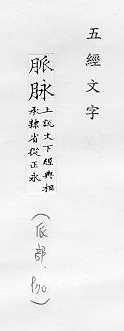 五經文字
脈
脉
上説文下經典相
承隸省從正永
部